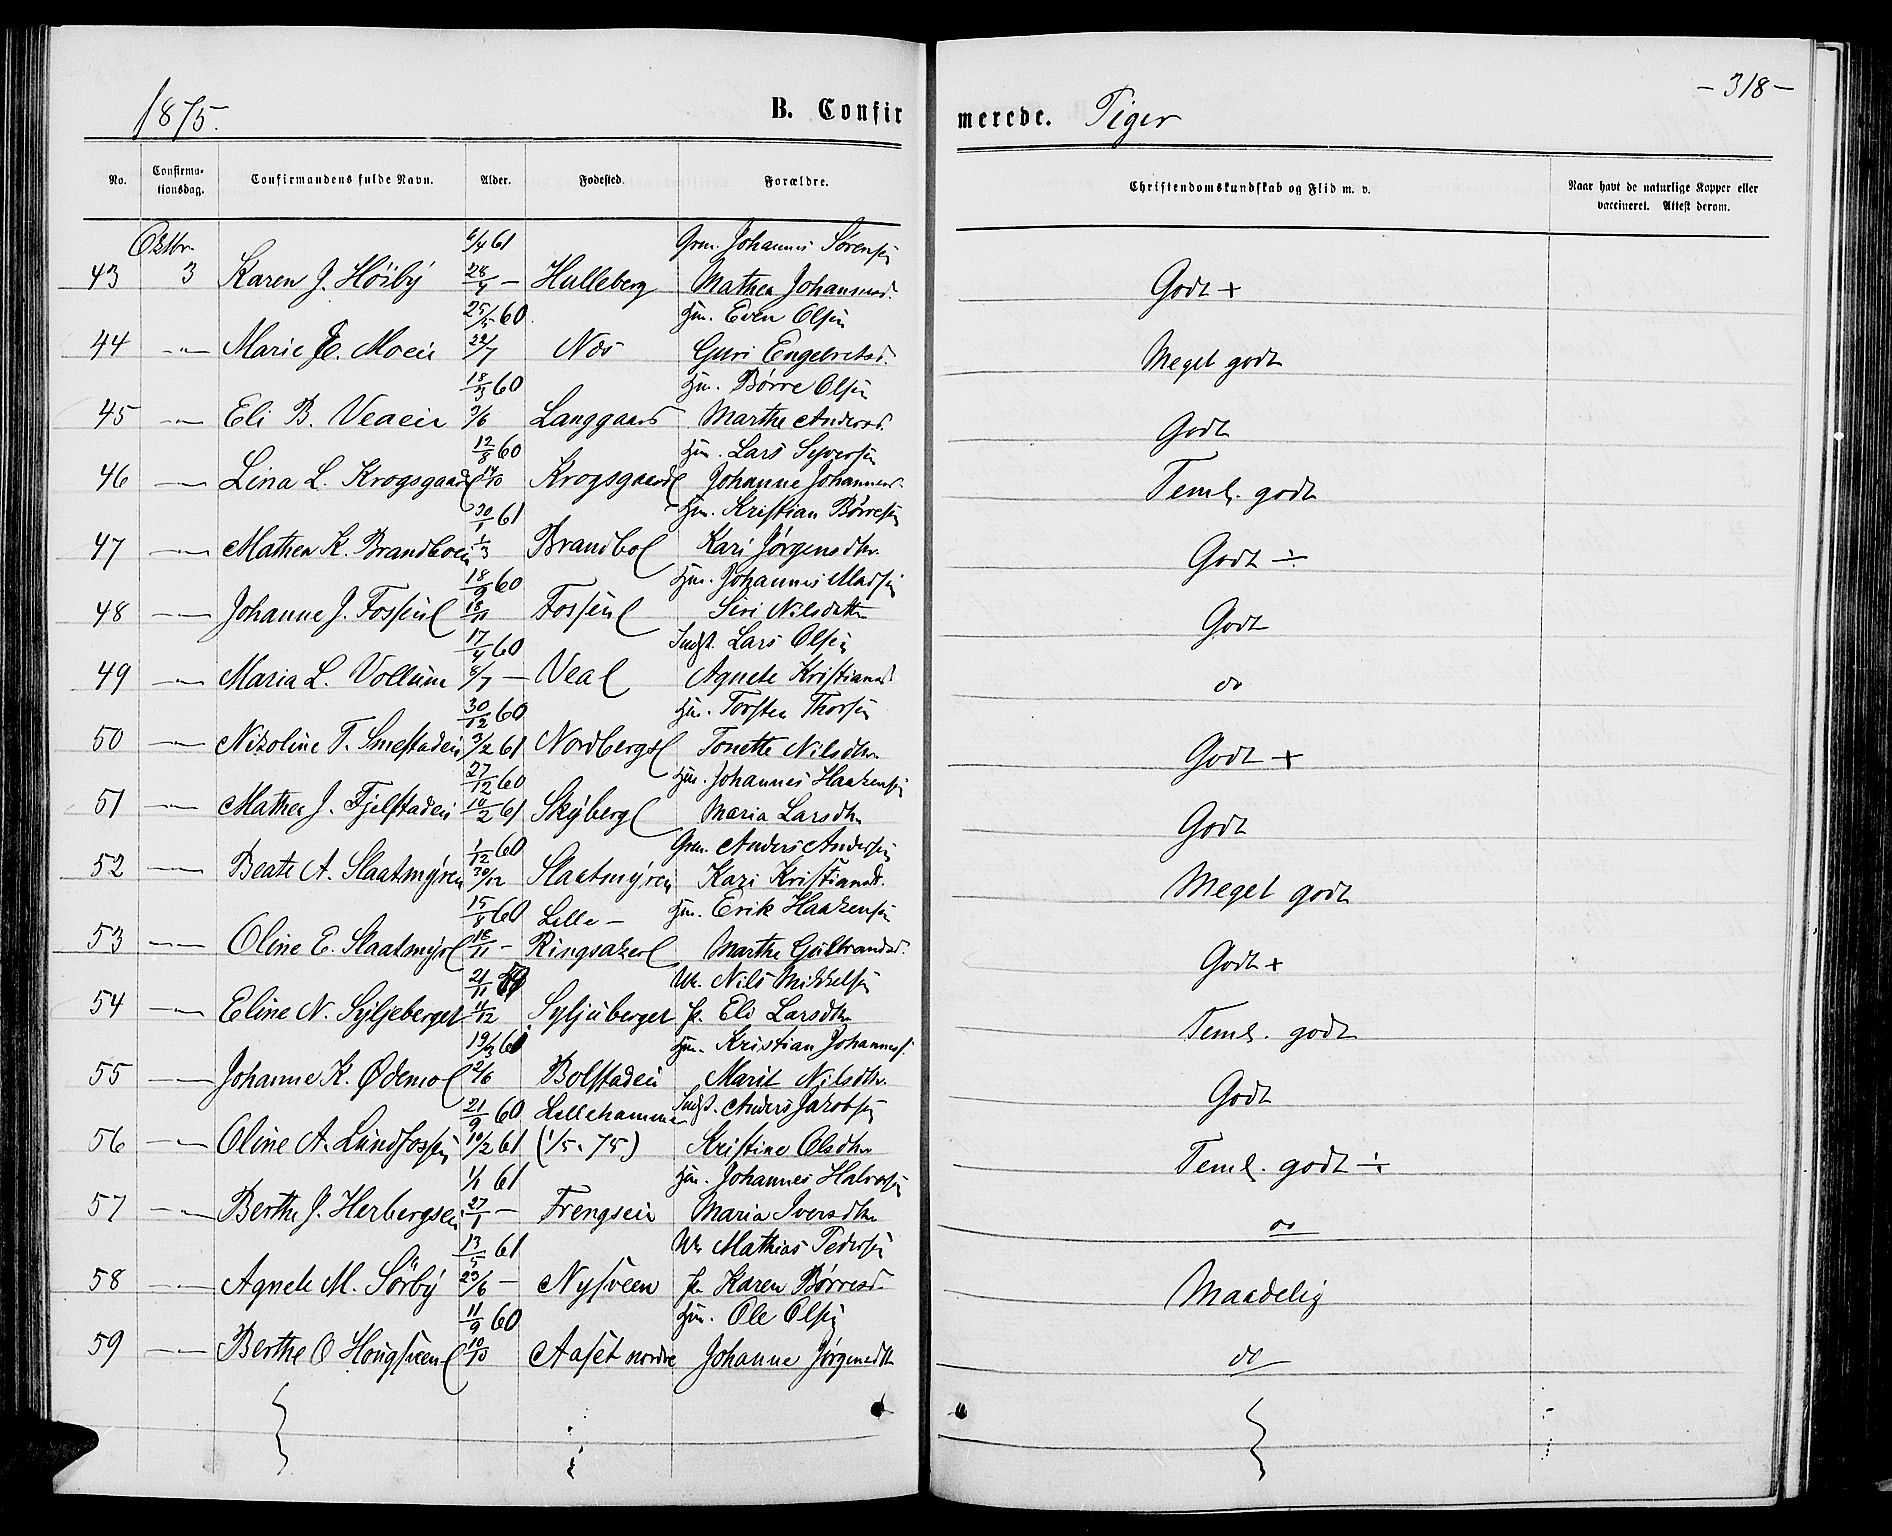 1875.
B. Confirmerede. Piger
- 318 -
No. Confirmationsdag. Confirmandens fulde Navn. Alder. Fødested. Forældre. Christendomskundskab og Flid m. v. Naar havt de naturlige Kopper eller vaccineret. Attest derom.
Oktbr. 6/4 61 Grm. Johannes Sørensen
43 3 Karen J. Höiby 28/4 — Hulleberg Mathea Johannesd. Godt +
25/5 60 Hm. Even Olsen
44 —„— Marie E. Moen 22/7 Næs Guri Engebretsd. Meget godt
18/3 60 Hm. Børre Olsen
45 —„— Eli B. Veaeie 3/6 Langgaard Marthe Andersd. Godt
12/8 60 Hm. Lars Syversen
46 —„— Lina L. Krogsgaard 14/10 Krogsgaard Johanne Johannesd. Teml. godt
30/1 61 Hm. Kristian Børresen
47 —„— Mathea K. Brandboeie 1/3 Brandbol Kari Jørgensdtr. Godt ÷
18/9 60 Hm. Johannes Madsen
48 —„— Johanne J. Fossene 18/11 Fossene Siri Nilsdatter Godt
17/4 60 Indst. Lars Olsen
49 —„— Maria L. Vollum 8/7 — Veal Agnete Kristiansd. do
30/12 60 Hm. Torsten Thorsen
50 —„— Nikoline T. Smestadeie 3/2 61 Nordbergse Tonette Nilsdtr. Godt +
27/12 60 Hm. Johannes Haakensen
51 —„— Mathea J. Fjelstadeie 10/2 61 Skyberge Maria Larsdtr. Godt
1/12 60 Grm. Anders Andersen
52 —„— Beate A. Slaatmyren 30/12 Slaatmyren Kari Kristiansd. Meget godt
15/8 60 Lille — Hm. Erik Haakensen
53 —„— Oline E. Slaatmyre 18/11 — Ringsakere Marthe Gulbrandsd. Godt +
21/11 Uk. Nils Mikkelsen
54 —„— Eline N. Syljeberget 11/12 Syljuberget p. Eli Larsdtr. Teml. godt
19/3 60 Hm. Kristian Johanness.
55 —„— Johanne K. Ødemo 2/6 Bolstadeie Marit Nilsdtr. Godt
21/9 60 Lillehammer Indst. Anders Jakobsen
56 —„— Oline A. Lundfossen 10/2 61 (1/5. 75) Kristine Olsdtr. Teml. godt ÷
1/1 61 Hm. Johannes Halvorsen
57 —„— Berthe J. Herbergseie 27/1 — Frengseie Maria Iversdtr. do
13/5 61 Uk Mathias Pedersen
58 —„— Agnete M. Sörby 23/6 — Nysveen p. Karen Børresd. Maadelig
11/9 60 Hm. Ole Olsen
59 —„— Berthe O Hougsveene 10/10 Aaset nordre Johanne Jørgensdtr do